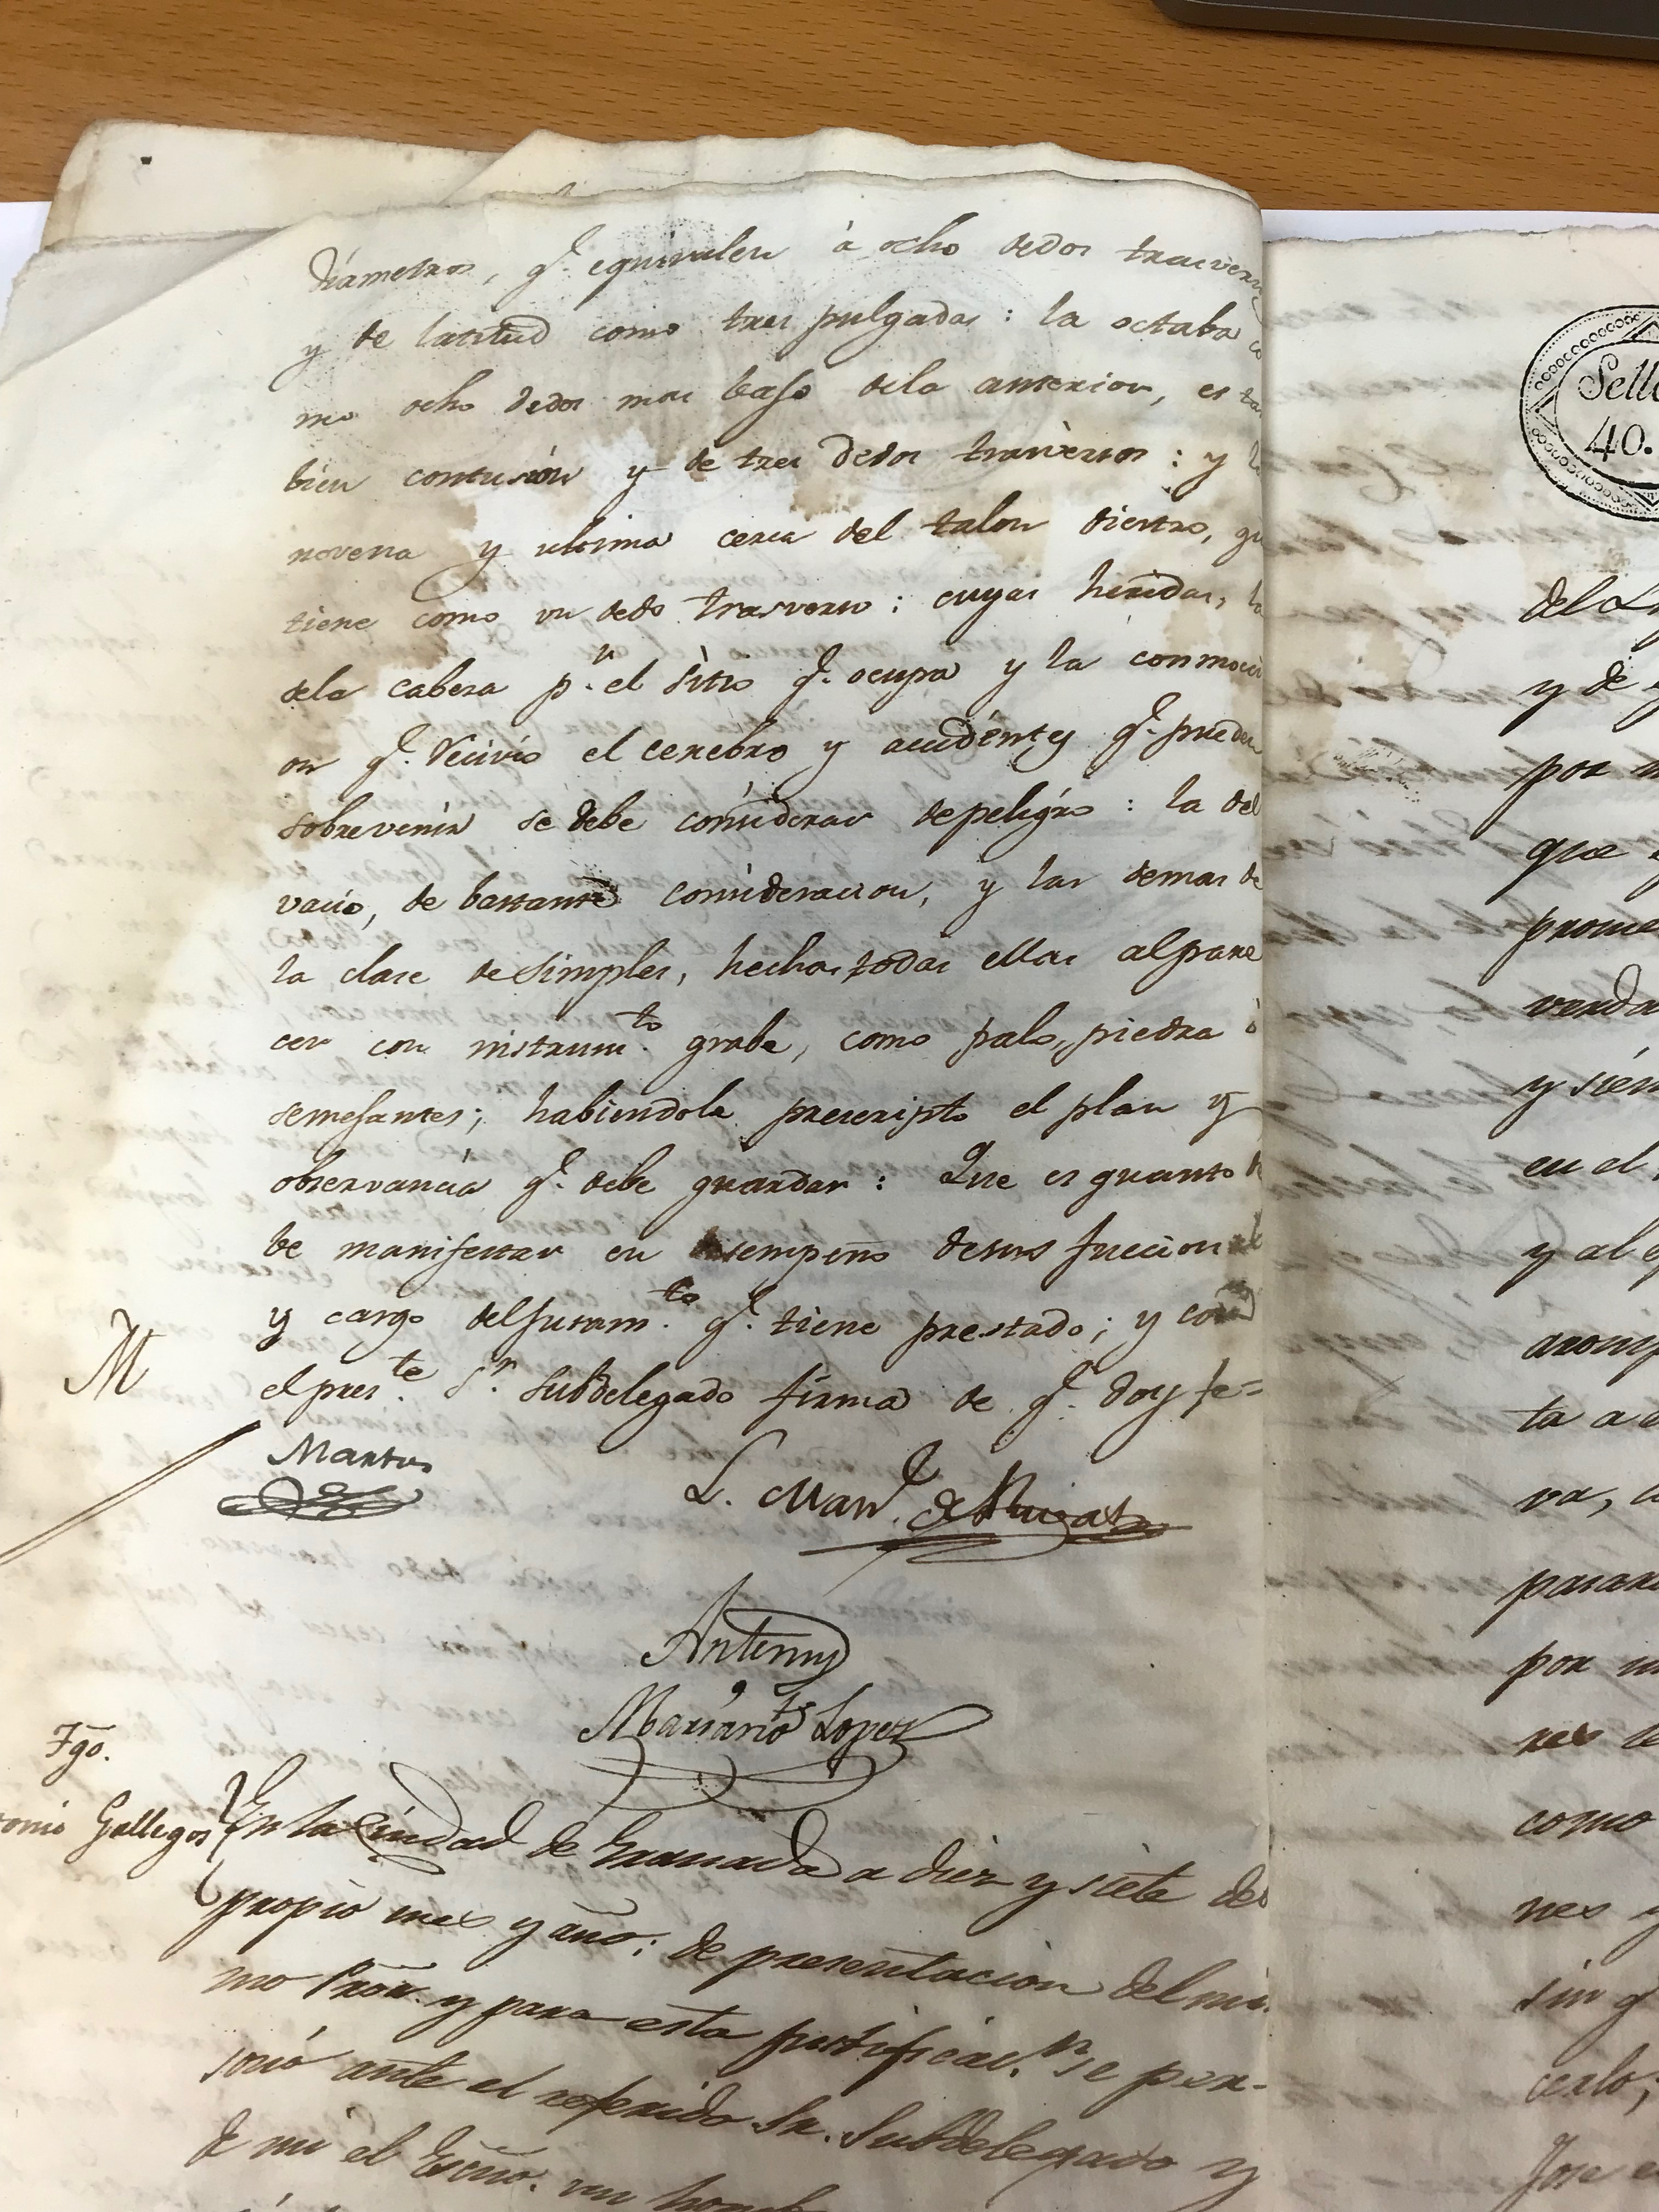 diametros, q.e equivalen à ocho dedos trasvers
y de latitud como tres pulgadas: la octaba co
mo ocho dedos mas bajo dela anterior, es ta
bien contusión y de tres dedos trasversos: y la
novena y ultima cerca del talon diestro, qu
tiene como un dedo trasverso: cuyas heridas, la
dela cabeza p.r el sitio q.e ocupa y la conmoci
on q.e recivió el cerebro y accidentes q.e pueden
sobrevenir se debe considerar de peligro: la del
vacio, de bastante consideracion, y las demas de
la clase de simples, hechas todas ellas al pare
cer con instrum.to grabe, como palo, piedra ò
semejantes; habiendola prescripto el plan y
observancia q.e debe guardar: Que es quanto de
be manifestar en desempeño de sus funcion
y cargo del juram.to q.e tiene prestado; y con
el pres.te S.r Subdelegado firma de q.e doy fe=
M
Martos
L. Man.l de
Antemy
Mariano Lopez
Tgo.
tonio Gallegos
En la Ciudad de Granada a diez y siete del
propio mes y año: de presentacion del mis
mo Pror. y para esta justificac.n se per-
sonó ante el referido Sr. Subdelegado y
de mi el Esno. un homb
Sell
40.
y de
por
que
prome
verda
y siem
en el
y al
ta a
va,
por
como
nes y
sin
cerlo;
Jose